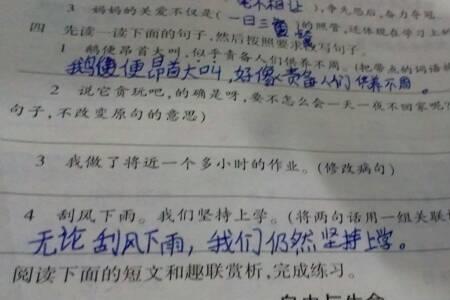 3 妈妈的关爱不仅是(一日三 )的照管,还体现在学习上的
毫不相让 ),争先恐后,奋力夺冠
四 先读一读下面的句子,然后按照要求改写句子。
1 鹅便昂首大叫,似乎责备人们供养不周。(把带点的词语换
鹅便便昂首大叫,好像责备人们供养不周。
2 说它贪玩吧,的确是呀,要不怎么会一天一夜不回家呢?
句子,不改变原句的意思)
3 我做了将近一个多小时的作业。(修改病句)
4 刮风下雨。我们坚持上学。(将两句话用一组关联
无论刮风下雨,我们仍然坚持上学。
阅读下面的短文和趣联赏析,完成练习。